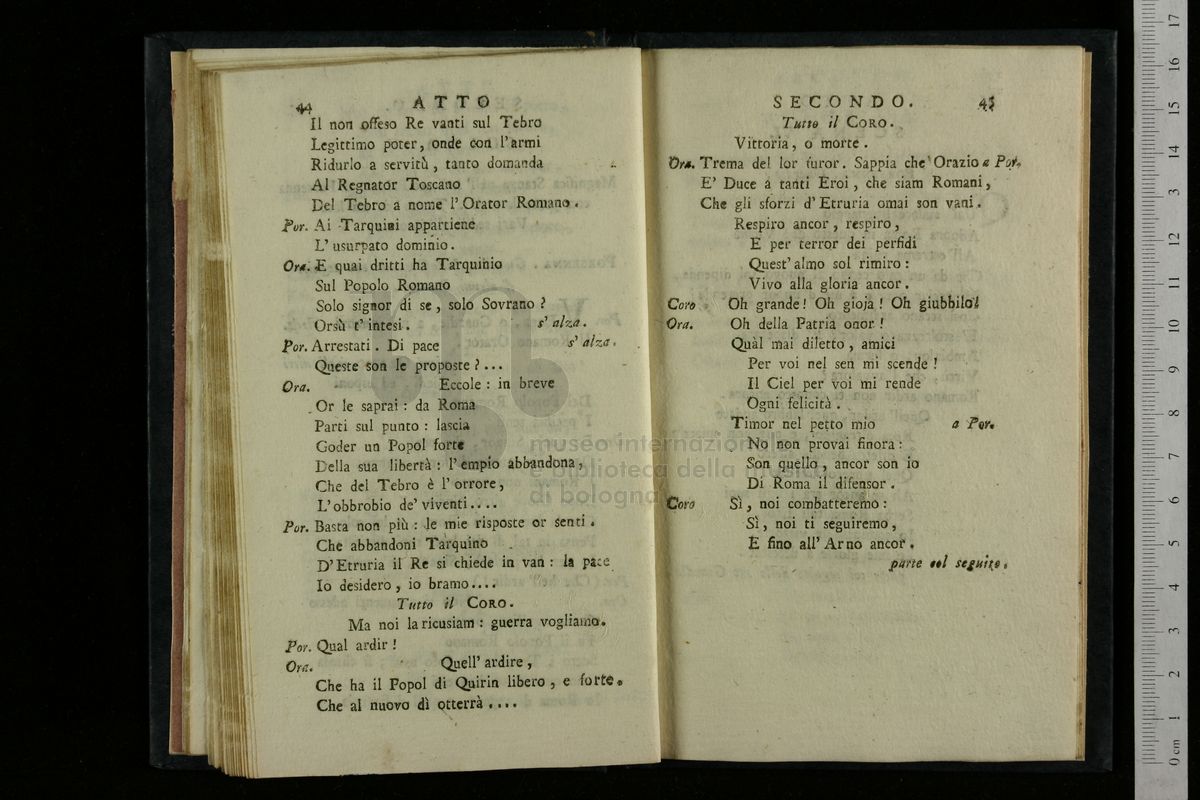 44 ATTO
Il non offeso Re vanti sul Tebro
Legittimo poter, onde con l'armi
Ridurlo a servitù, tanto domanda
Al Regnator Toscano
Del Tebro a nome l'Orator Romano.
Por. Ai Tarquini appartiene
L'usurpato dominio.
Ora. E quai dritti ha Tarquinio
Sul Popolo Romano
Solo signor di se, solo Sovrano?
Orsù t'intesi. s'alza.
Por. Arrestati. Di pace s'alza.
Queste son le proposte?...
Ora. Eccole: in breve
Or le saprai: da Roma
Parti sul punto: lascia
Goder un Popol forte
Della sua libertà: l'empio abbandona,
Che del Tebro è l'orrore,
L'obbrobio de' viventi....
Por. Basta non più: le mie risposte or senti.
Che abbandoni Tarquino
D'Etruria il Re si chiede in van: la pace
Io desidero, io bramo....
Tutto il CORO.
Ma noi la ricusiam: guerra vogliamo.
Por. Qual ardir!
Ora. Quell' ardire,
Che ha il Popol di Quirin libero, e forte.
Che al nuovo dì otterrà....
SECONDO. 45
Tutto il CORO.
Vittoria, o morte.
Ora. Trema del lor furor. Sappia che Orazio a Por.
E' Duce a tanti Eroi, che siam Romani,
Che gli sforzi d'Etruria omai son vani.
Respiro ancor, respiro,
E per terror dei perfidi
Quest' almo sol rimiro:
Vivo alla gloria ancor.
Coro Oh grande! Oh gioja! Oh giubbilo!
Ora. Oh della Patria onor!
Quàl mai diletto, amici
Per voi nel sen mi scende!
Il Ciel per voi mi rende
Ogni felicità.
Timor nel petto mio a Por.
No non provai finora:
Son quello, ancor son io
Di Roma il difensor.
Coro Sì, noi combatteremo:
Sì, noi ti seguiremo,
E fino all' Arno ancor.
parte col seguito.
museo internazionale
e biblioteca della musica
di bologna
0 cm 1 2 3 4 5 6 7 8 9 10 11 12 13 14 15 16 17